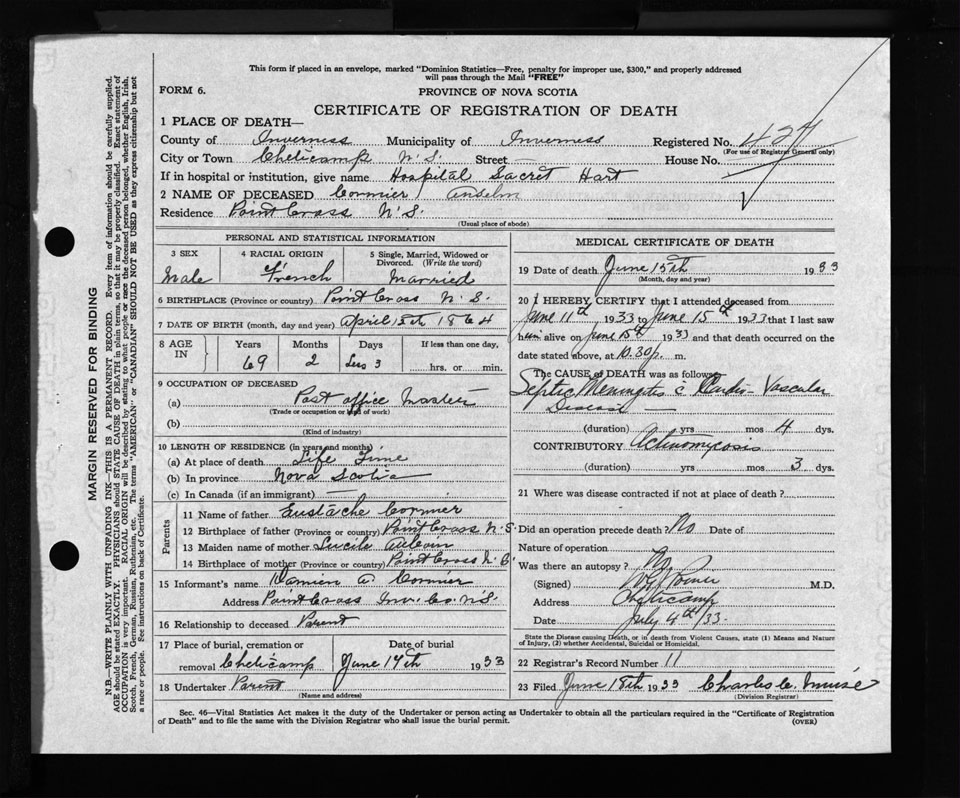 This form if placed in an envelope, marked "Dominion Statistics—Free, penalty for improper use, $300," and properly addressed
will pass through the Mail "FREE"
FORM 6.
PROVINCE OF NOVA SCOTIA
CERTIFICATE OF REGISTRATION OF DEATH
1 PLACE OF DEATH—
County of Inverness Municipality of Inverness Registered No. 424
(For use of Registrar General only)
City or Town Cheticamp N.S. Street — House No.
If in hospital or institution, give name Hospital Sacret Hart
2 NAME OF DECEASED Cormier Anselm
Residence Point Cross N.S.
(Usual place of abode)
PERSONAL AND STATISTICAL INFORMATION
3 SEX
Male
4 RACIAL ORIGIN
French
5 Single, Married, Widowed or
Divorced. (Write the word)
Married
6 BIRTHPLACE (Province or country) Point Cross N.S.
7 DATE OF BIRTH (month, day and year) April 15th 1864
8 AGE IN
Years 69
Months 2
Days 3
If less than one day,
hrs. or min.
9 OCCUPATION OF DECEASED
(a) Post office Master
(Trade or occupation or kind of work)
(b)
(Kind of industry)
10 LENGTH OF RESIDENCE (in years and months)
(a) At place of death Life Time
(b) In province Nova Scotia
(c) In Canada (if an immigrant) —
Parents
11 Name of father Eustache Cormier
12 Birthplace of father (Province or country) Point Cross N.S.
13 Maiden name of mother Lucile
14 Birthplace of mother (Province or country) Point Cross
15 Informant's name Damien A Cormier
Address Point Cross Inv. Co. N.S.
16 Relationship to deceased Parent
17 Place of burial, cremation or
removal Cheticamp
Date of burial
June 17th 1933
18 Undertaker Parent
(Name and address)
MEDICAL CERTIFICATE OF DEATH
19 Date of death June 15th 1933
(Month, day and year)
20 I HEREBY CERTIFY that I attended deceased from
June 11th 1933 to June 15th 1933 that I last saw
him alive on June 15th 1933 and that death occurred on the
date stated above, at 10.30 p. m.
The CAUSE of DEATH was as follows:
Septic Meningitis c̄ Cardio-Vascular
Disease —
(duration) yrs mos 4 dys.
CONTRIBUTORY Actinomycosis
(duration) yrs mos 3 dys.
21 Where was disease contracted if not at place of death?
Did an operation precede death? No Date of
Nature of operation
Was there an autopsy? No
(Signed) M.D.
Address Cheticamp
Date July 4th/33.
State the Disease causing Death, or in death from Violent Causes, state (1) Means and Nature
of Injury, (2) whether Accidental, Suicidal or Homicidal.
22 Registrar's Record Number 11
23 Filed June 18th 1933 Charles C. Muise
(Division Registrar)
Sec. 46—Vital Statistics Act makes it the duty of the Undertaker or person acting as Undertaker to obtain all the particulars required in the "Certificate of Registration
of Death" and to file the same with the Division Registrar who shall issue the burial permit.
(OVER)
MARGIN RESERVED FOR BINDING
N.B.—WRITE PLAINLY WITH UNFADING INK—THIS IS A PERMANENT RECORD. Every item of information should be carefully supplied.
AGE should be stated EXACTLY. PHYSICIANS should STATE CAUSE OF DEATH in plain terms, so that it may be properly classified. Exact statement of
OCCUPATION is very important. RACIAL ORIGIN will be described by stating to what people or race the deceased person belonged, whether English, Irish,
Scotch, French, German, Russian, Ruthenian, etc. The terms "AMERICAN" or "CANADIAN" SHOULD NOT BE USED as they express citizenship but not
a race or people. See instructions on back of Certificate.